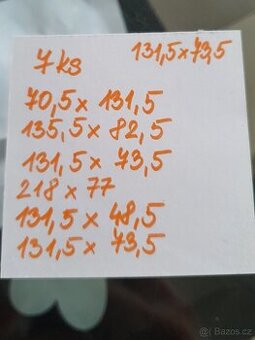 7 ks 131,5 x 73,5
70,5 x 131,5
135,5 x 82,5
131,5 x 73,5
218 x 77
131,5 x 48,5
131,5 x 73,5
Bazoš.cz